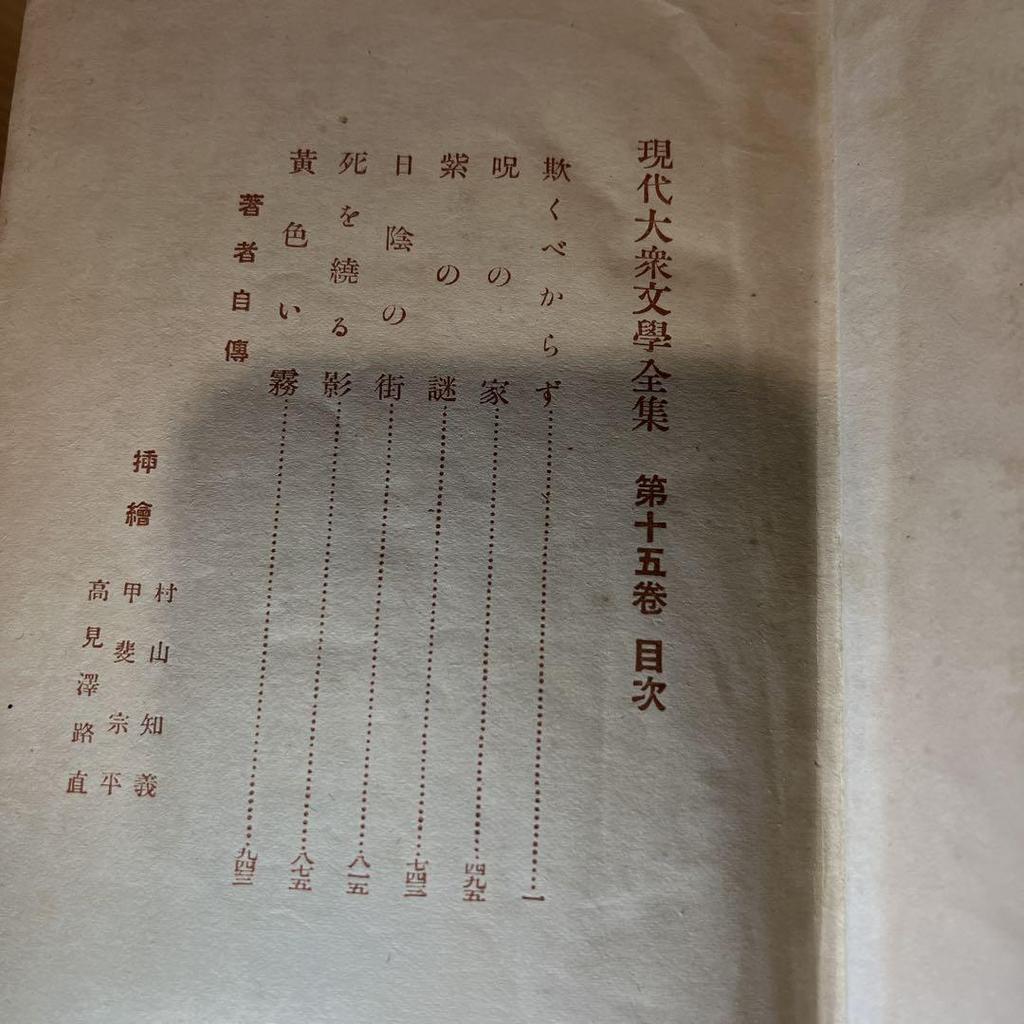 現代大衆文學全集 第十五卷 目次
欺くべからず……一
呪の家……四九五
紫の謎……七四三
日陰の街……八一五
死を繞る影……八七五
黃色い霧……九四三
著者自傳
挿繪
村山知義
甲斐宗平
高見澤路直